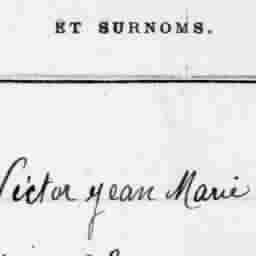 ET SURNOMS.
Victor Jean Marie